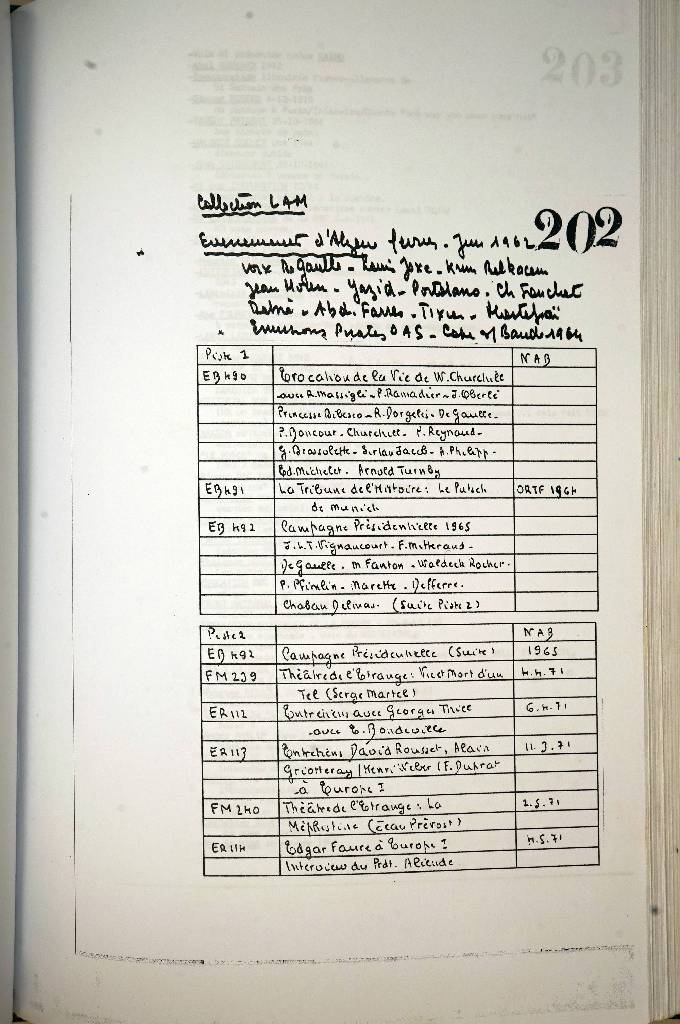 203
Collection LAM
202
Evenement d'Alger février - Juin 1962
voix De Gaulle - Louis Joxe - Krim Belkacem
Jean Morin - Yazid - Portolano - Ch Fouchet
Debré - Abd. Farres - Tixier -
Emissions Pirates OAS - Case of Baude 1964
Piste 1 NAB
EB 490 Evocation de la Vie de W. Churchill
avec R. Massigli - P. Ramadier - J. Oberlé
Princesse Bibesco - R. Dorgelès - De Gaulle -
P. Boncour - Churchill - P. Reynaud -
G. Brossolette - Sir Ian Jacob - A. Philipp -
Ed. Michelet - Arnold Turnby
EB 491 La Tribune de l'Histoire : Le Putsch ORTF 1964
de Munich
EB 492 Campagne Présidentielle 1965
J.L.T. Vignaucourt - F. Mitterand -
De Gaulle - M Fanton - Waldeck Rocher -
P. Pfimlin - Marette - Defferre -
Chaban Delmas - (Suite Piste 2)
Piste 2 NAB
EB 492 Campagne Présidentielle (Suite) 1965
FM 239 Théâtre de l'Etrange : Vie et Mort d'un 4.4.71
Tel (Serge Martel)
ER 112 Entretiens avec Georges 6.4.71
avec E. Bondeville
ER 113 Entretiens David Rousset, Alain 11.3.71
Griotteray / Henri Weber / F. Duprat
à Europe I
FM 240 Théâtre de l'Etrange : La 2.5.71
Méphistine (Jean Prévost)
ER 114 Edgar Faure à Europe I 4.5.71
Interview du Prdt. Aliende